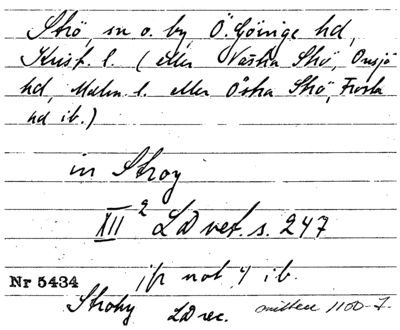 Strö, sn o. by, Ö. Göinge hd,
Krist. l. (eller Västra Strö, Onsjö
hd, Malm. l. eller Östra Strö, Frosta
hd ib.)
in Stroy
XII 2 LD vet. s. 247
Nr 5434 jfr not 4 ib.
Strohy LD rec. mitten 1100-t.